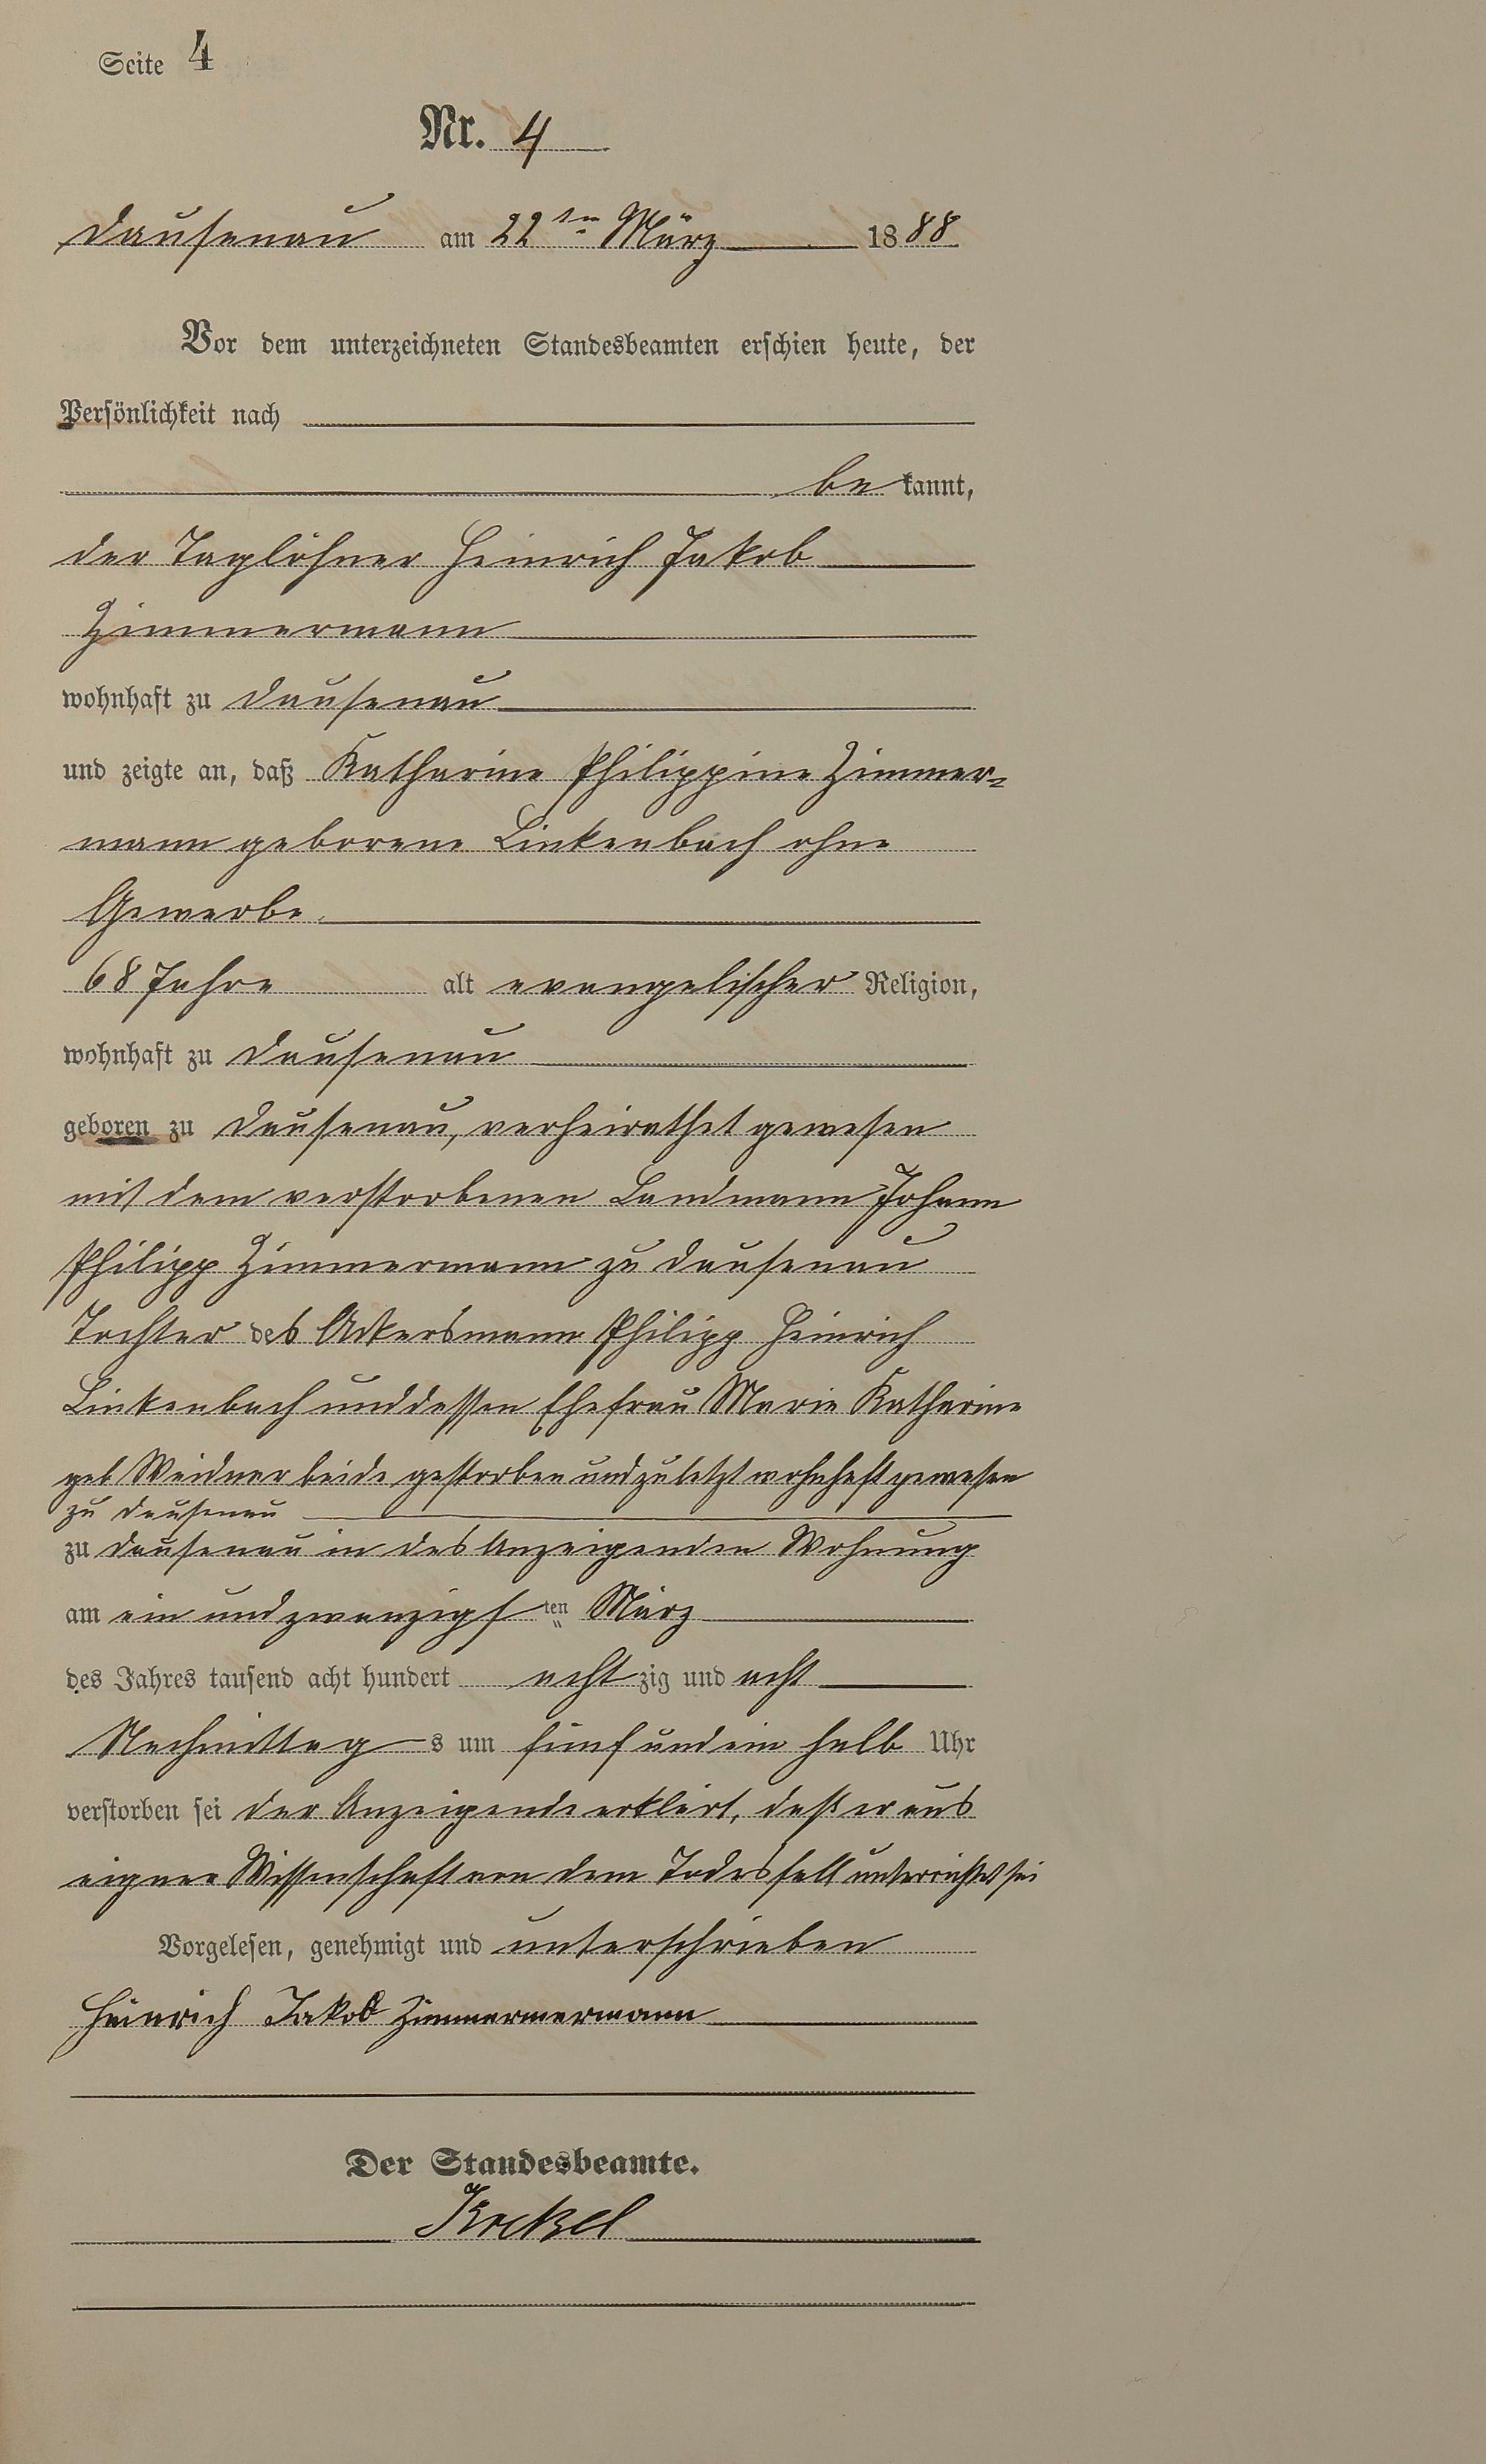 Seite 4
Nr. 4
Dausenau am 22ten März 1888
Vor dem unterzeichneten Standesbeamten erschien heute, der
Persönlichkeit nach
bekannt,
der Taglöhner Heinrich Jakob
Zimmermann
wohnhaft zu Dausenau
und zeigte an, daß Katharine Philippine Zimmer=
mann geborene Linkenbach ohne
Gewerbe.
68 Jahre alt evangelischer Religion,
wohnhaft zu Dausenau
geboren zu Dausenau, verheirathet gewesen
mit dem verstorbenen Landmann Johann
Philipp Zimmermann zu Dausenau
Tochter des Ackersmann Philipp Heinrich
Linkenbach und dessen Ehefrau Marie Katharine
geb Weidner beide gestorben und zuletzt wohnhaft gewesen
zu Dausenau
zu Dausenau in des Anzeigenden Wohnung
am ein und zwanzigsten März
des Jahres tausend acht hundert achtzig und acht
Nachmittags um fünf und ein halb Uhr
verstorben sei der Anzeigende erklärt, daß er aus
eigner Wissenschaft von dem Todesfall unterrichtet sei
Vorgelesen, genehmigt und unterschrieben
Heinrich Jakob Zimmermermann
Der Standesbeamte.